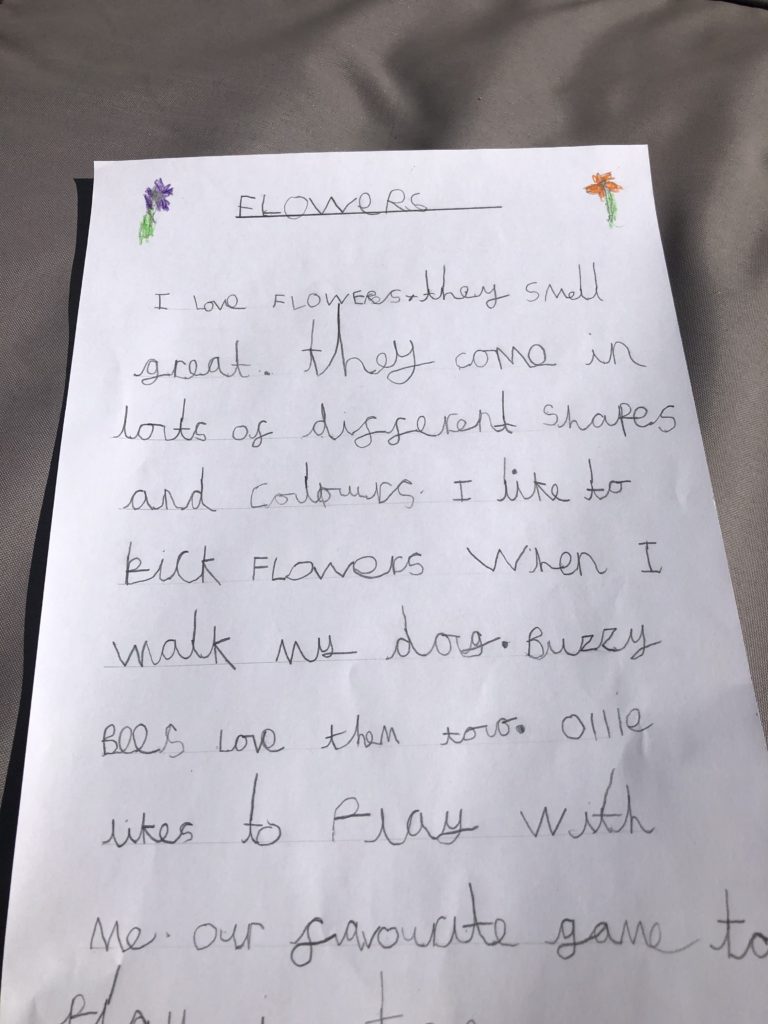 FLOWERS
I love FLOWERS they smell
great. They come in
lots of different shapes
and colours. I like to
kick FLOWERS when I
walk my dog. Buzzy
Bees love them too. Ollie
likes to play with
me. our favourite game to
play is